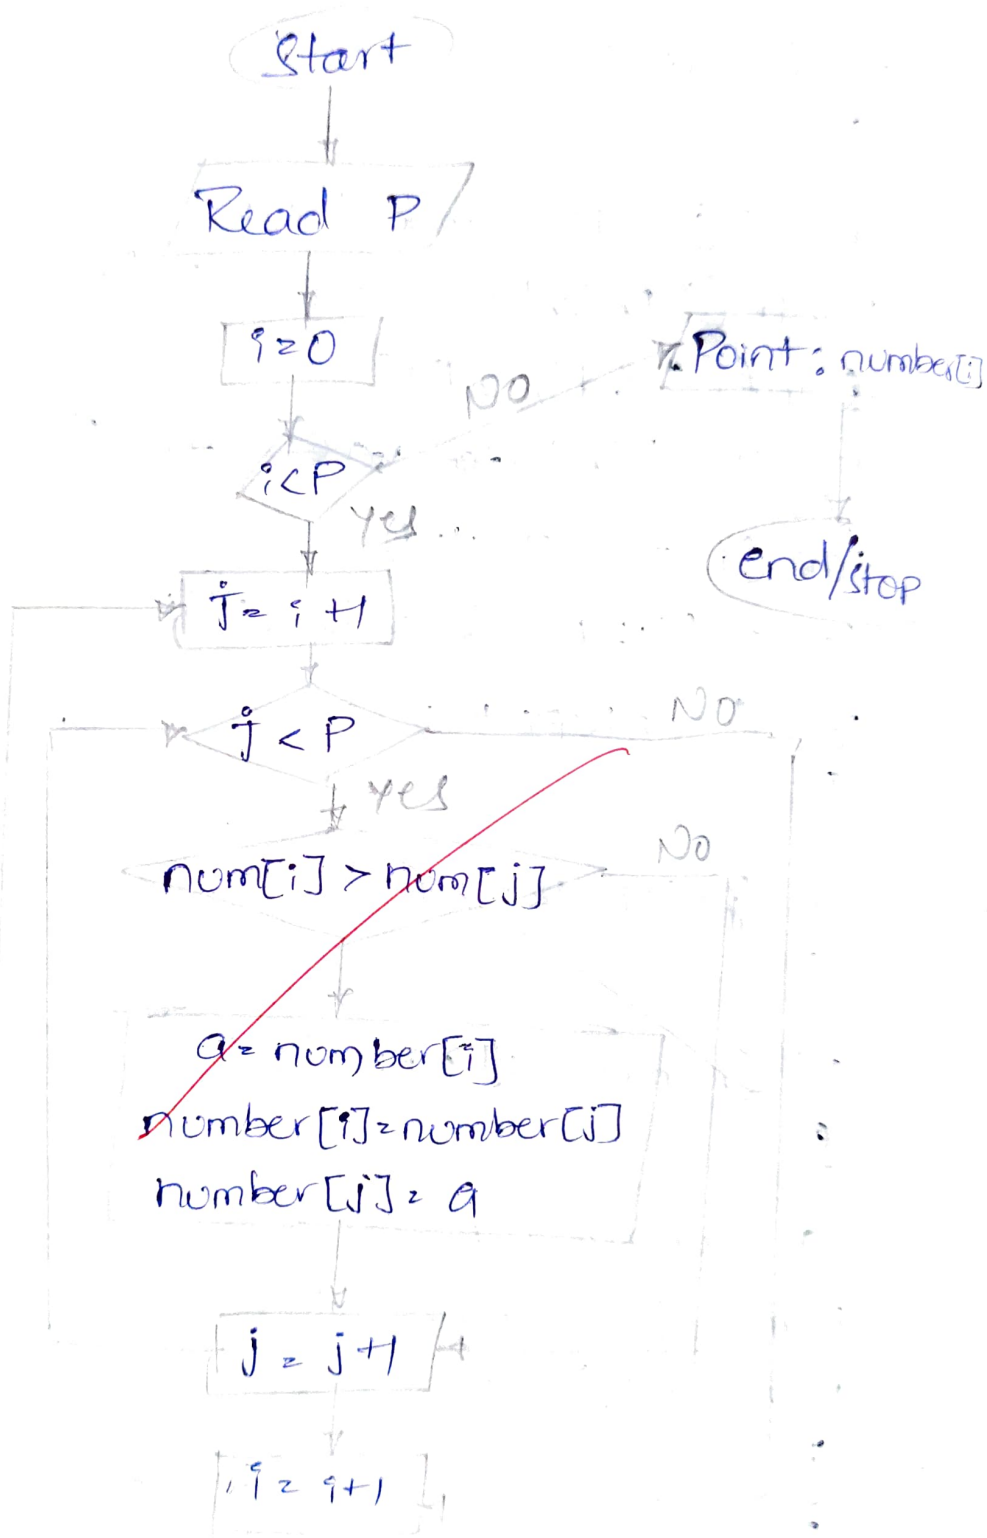 Start
Read P
i=0
NO
Point: number[i]
i<P
yes
end/stop
j=i+1
j<P
NO
yes
num[i] > num[j]
No
a=number[i]
number[i]=number[j]
number[j]=a
j=j+1
i=i+1